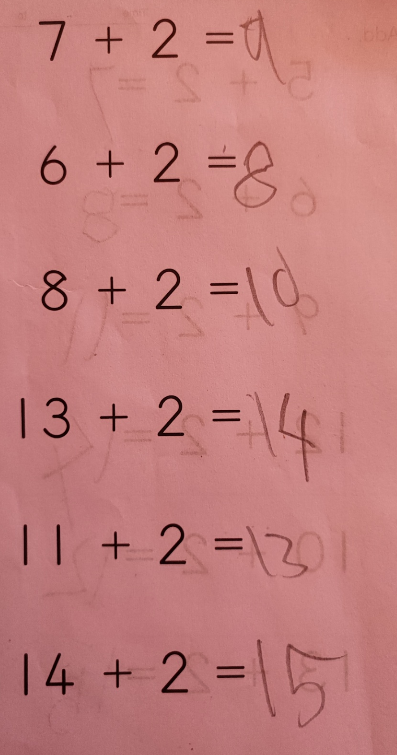 7 + 2 = 9
6 + 2 = 8
8 + 2 = 10
13 + 2 = 14
11 + 2 = 13
14 + 2 = 15